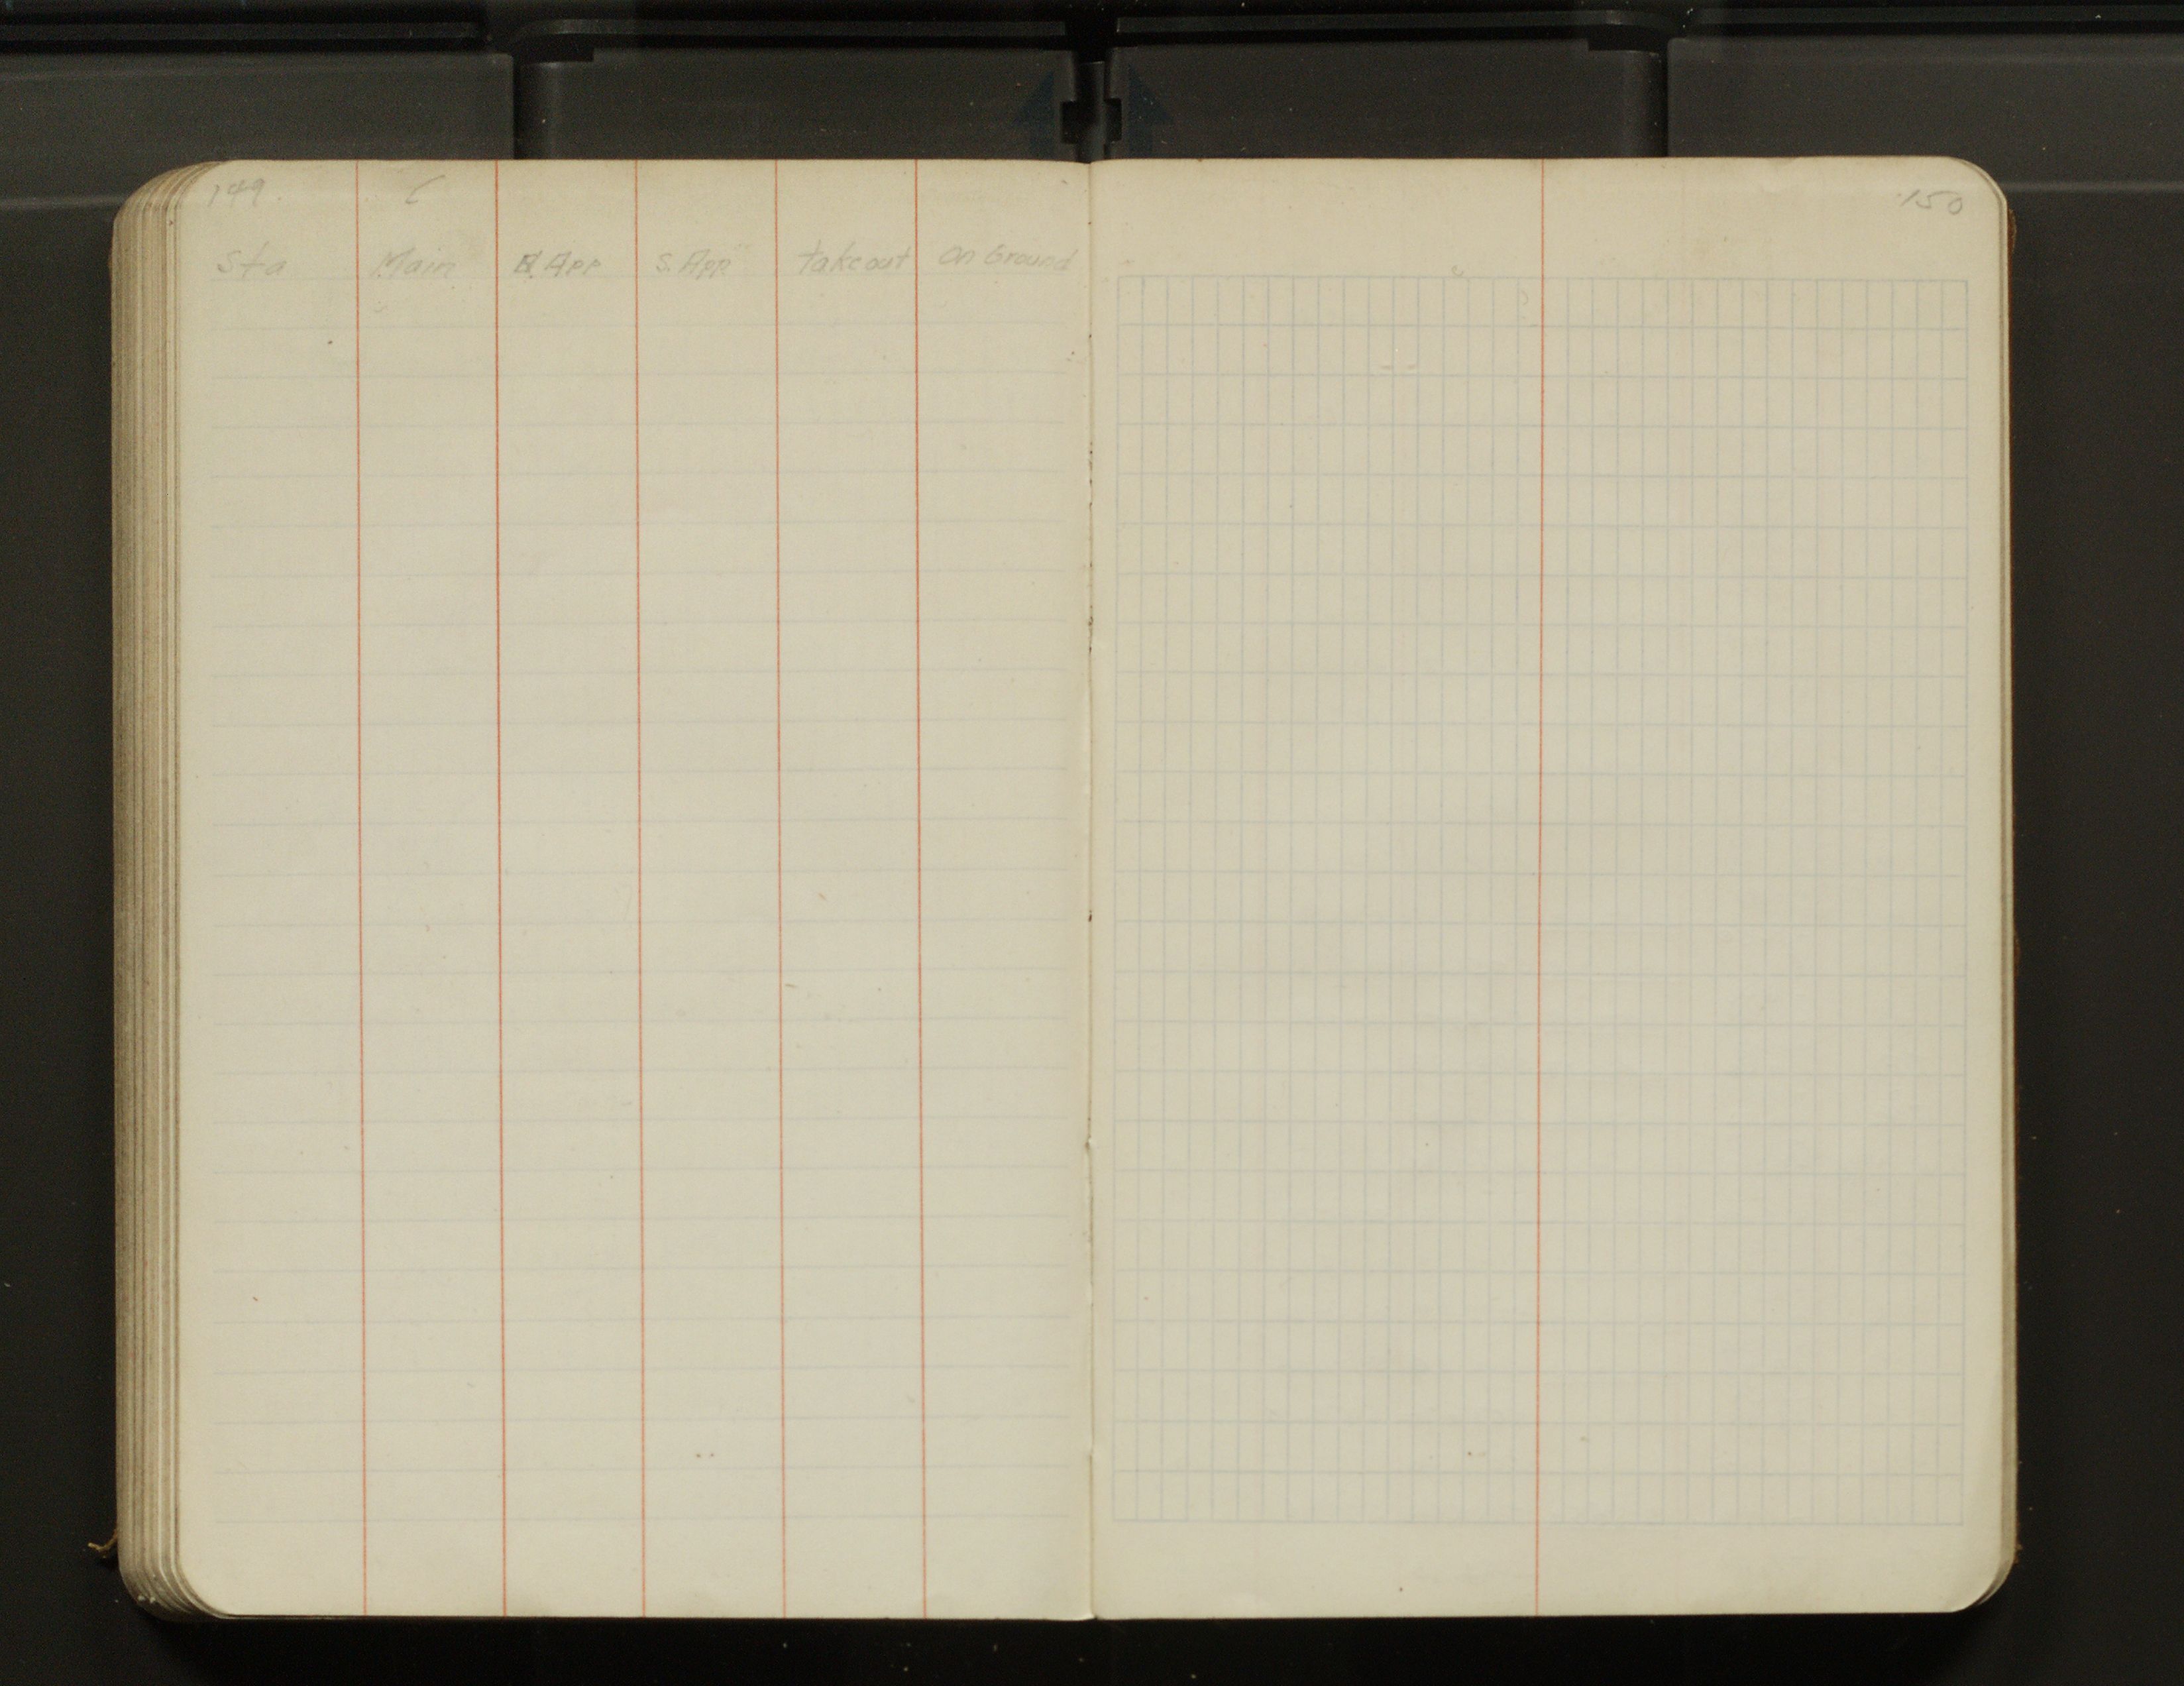 149.
Sta Main App S. App. takeout on Ground
150